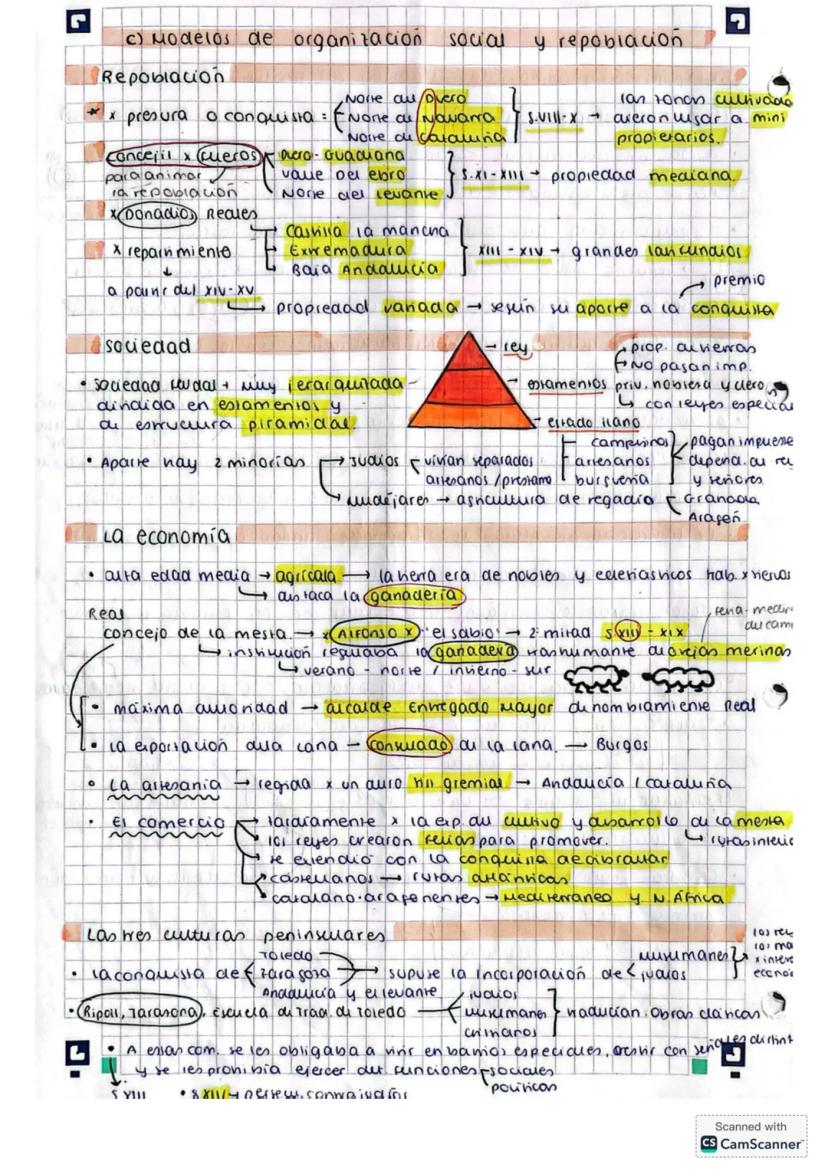 c) Modelos de organización social y repoblación
Repoblación
* x presura o conquista = Norte del Duero
Norte de Navarra
Norte de Cataluña
S.VIII-X → las zonas cultivada
dieron lugar a mini
propietarios.
concejil x fueros
para animar
la repoblación
Duero-Guadiana
valle del ebro
Norte del levante
S.XI-XIII → propiedad mediana.
x Donadios Reales
x repartimiento
Castilla la mancha
Extremadura
Baja Andalucía
XIII - XIV → grandes latifundios
a partir del XIV-XV
→ propiedad variada → según su aporte a la conquista
→ premio
sociedad
• sociedad feudal + muy jerarquizada
dividida en estamentos y
de estructura piramidal.
→ rey
→ estamentos priv. nobleza y clero
prop. de tierras
NO pagan imp.
↳ con leyes especial
estado llano
campesinos
artesanos
burguesía
pagan impuesto
depend. de rey
y señores
• Aparte hay 2 minorías → Judíos
vivían separados
artesanos/préstamo
→ mudéjares → agricultura de regadío
Granada
Aragón
La economía
• alta edad media → agrícola → la tierra era de nobles y eclesiásticos
↳ destaca la ganadería
Real
concejo de la mesta → x Alfonso X "el sabio" → 2ª mitad S.XIII - XIX
↳ institución regulaba la ganadera trashumante de ovejas merinas
↳ verano - norte / invierno - sur
• máxima autoridad → alcalde Entregado Mayor de nombramiento Real
• la exportación de la lana → consulado de la lana. → Burgos
• La artesanía → regida x un duro gremial → Andalucía / cataluña
• El comercio → tardíamente x la exp. del cultivo y desarrollo de la mesta
→ los reyes crearon ferias para promover.
→ se extendió con la conquista de Gibraltar
→ castellanos → rutas atlánticas
→ catalano-aragonenses → Mediterráneo y N. África
Las tres culturas peninsulares
• la conquista de Toledo
Zaragoza
Andalucía y el levante
→ supuso la incorporación de
musulmanes
judíos
• Ripoll, Tarazona, Escuela de Trad. de Toledo
judíos
musulmanes
cristianos
traducían obras clásicas
• A estas com. se les obligaba a vivir en barrios especiales, vestir con señales distint
y se les prohibía ejercer dif. funciones
sociales
políticas
S XIII • S XIV →
Scanned with
CS CamScanner